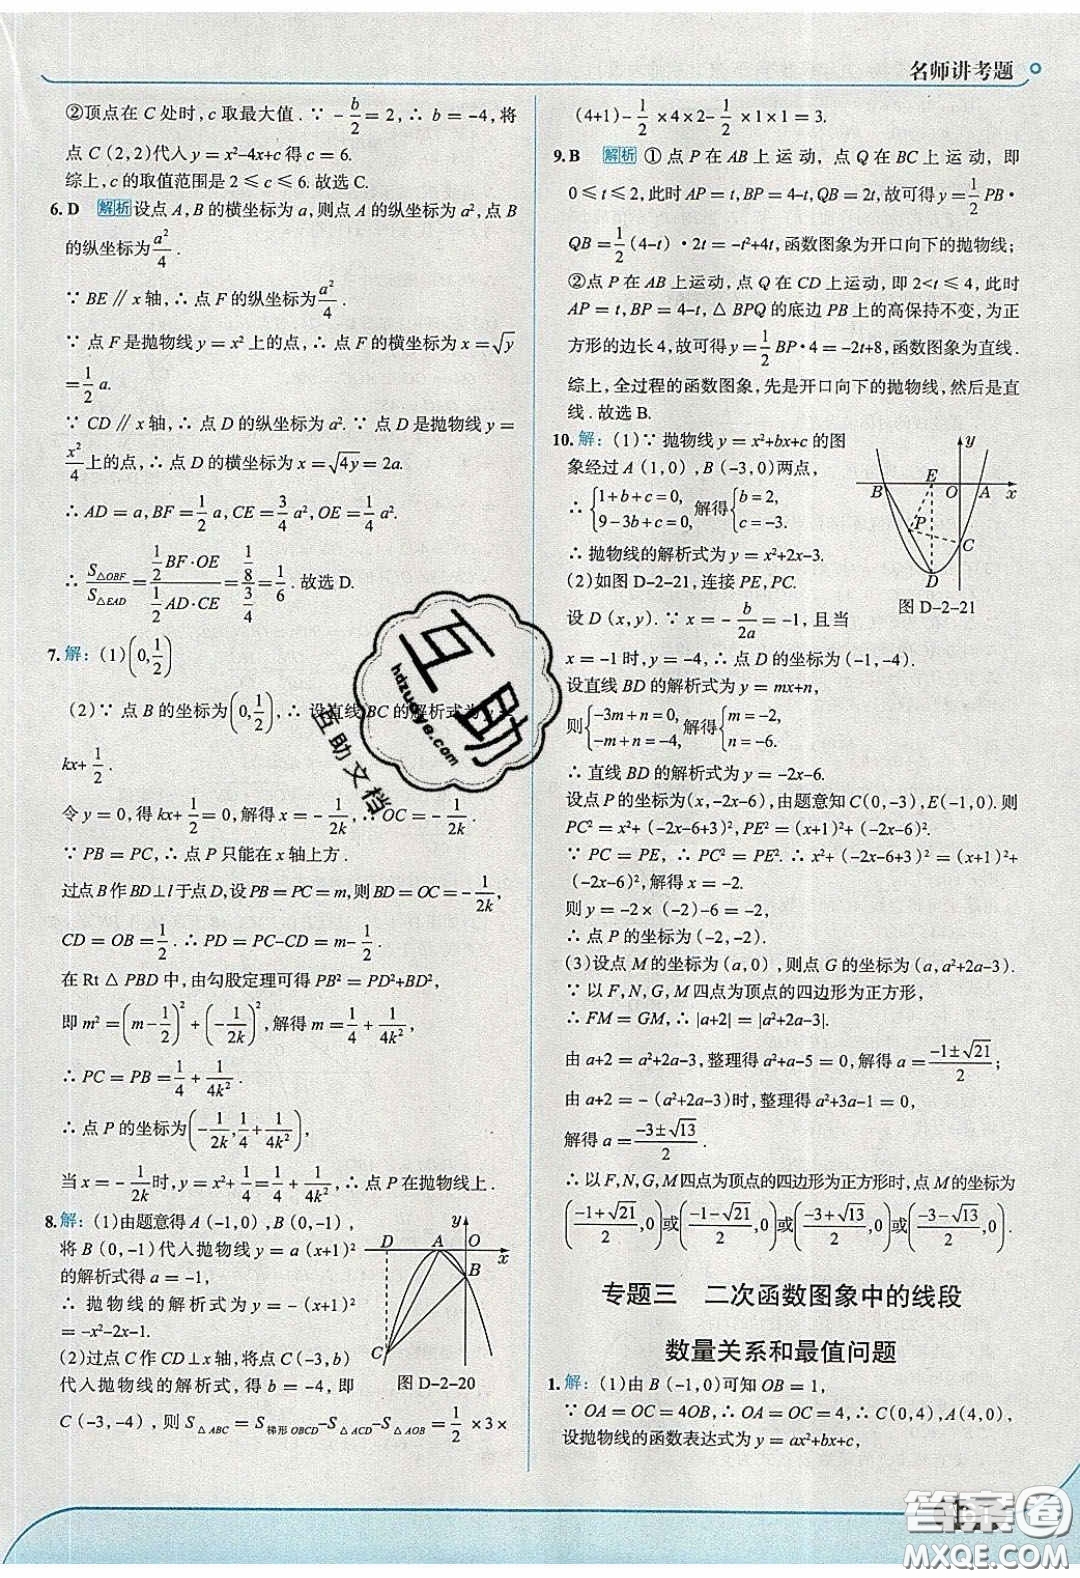 名师讲考题
②顶点在 C 处时,c 取最大值.∵ -b/2=2,∴ b=-4,将
点 C(2,2)代入 y=x²-4x+c 得 c=6.
综上,c 的取值范围是 2≤c≤6.故选 C.
6.D 解析 设点 A,B 的横坐标为 a,则点 A 的纵坐标为 a²,点 B
的纵坐标为 a²/4.
∵ BE∥x 轴,∴ 点 F 的纵坐标为 a²/4.
∵ 点 F 是抛物线 y=x² 上的点,∴ 点 F 的横坐标为 x=√y
=1/2 a.
∵ CD∥x 轴,∴ 点 D 的纵坐标为 a².∵ 点 D 是抛物线 y=
x²/4 上的点,∴ 点 D 的横坐标为 x=√4y=2a.
∴ AD=a,BF=1/2 a,CE=3/4 a²,OE=1/4 a².
∴ S△OBF/S△EAD=(1/2 BF·OE)/(1/2 AD·CE)=(1/8)/(3/4)=1/6.故选 D.
7.解:(1)(0,1/2)
(2)∵ 点 B 的坐标为(0,1/2),∴ 设直线 BC 的解析式为 y=
kx+1/2.
令 y=0,得 kx+1/2=0,解得 x=-1/2k,∴ OC=-1/2k.
∵ PB=PC,∴ 点 P 只能在 x 轴上方.
过点 B 作 BD⊥l 于点 D,设 PB=PC=m,则 BD=OC=-1/2k,
CD=OB=1/2.∴ PD=PC-CD=m-1/2.
在 Rt△PBD 中,由勾股定理可得 PB²=PD²+BD²,
即 m²=(m-1/2)²+(-1/2k)²,解得 m=1/4+1/4k²,
∴ PC=PB=1/4+1/4k².
∴ 点 P 的坐标为(-1/2k,1/4+1/4k²),
当 x=-1/2k 时,y=x²+1/4=1/4k²+1/4,∴ 点 P 在抛物线上.
8.解:(1)由题意得 A(-1,0),B(0,-1),
将 B(0,-1)代入抛物线 y=a(x+1)²
的解析式得 a=-1,
∴ 抛物线的解析式为 y=-(x+1)²
=-x²-2x-1.
(2)过点 C 作 CD⊥x 轴,将 C(-3,b)
代入抛物线的解析式,得 b=-4,即
C(-3,-4),则 S△ABC=S梯形OBCD-S△ACD-S△AOB=1/2×3×
y
D A O x
B
C
图 D-2-20
(4+1)-1/2×4×2-1/2×1×1=3.
9.B 解析 ①点 P 在 AB 上运动,点 Q 在 BC 上运动,即
0≤t≤2,此时 AP=t,BP=4-t,QB=2t,故可得 y=1/2 PB·
QB=1/2(4-t)·2t=-t²+4t,函数图象为开口向下的抛物线;
②点 P 在 AB 上运动,点 Q 在 CD 上运动,即 2<t≤4,此时
AP=t,BP=4-t,△BPQ 的底边 PB 上的高保持不变,为正
方形的边长 4,故可得 y=1/2 BP·4=-2t+8,函数图象为直线.
综上,全过程的函数图象,先是开口向下的抛物线,然后是直
线.故选 B.
10.解:(1)∵ 抛物线 y=x²+bx+c 的图
象经过 A(1,0),B(-3,0)两点,
∴ {1+b+c=0, 9-3b+c=0, 解得 {b=2, c=-3.
∴ 抛物线的解析式为 y=x²+2x-3.
(2)如图 D-2-21,连接 PE,PC.
设 D(x,y).∵ x=-b/2a=-1,且当
y
B E O A x
P
C
D
图 D-2-21
x=-1 时,y=-4,∴ 点 D 的坐标为(-1,-4).
设直线 BD 的解析式为 y=mx+n,
则 {-3m+n=0, -m+n=-4, 解得 {m=-2, n=-6.
∴ 直线 BD 的解析式为 y=-2x-6.
设点 P 的坐标为(x,-2x-6),由题意知 C(0,-3),E(-1,0).则
PC²=x²+(-2x-6+3)²,PE²=(x+1)²+(-2x-6)².
∵ PC=PE,∴ PC²=PE².∴ x²+(-2x-6+3)²=(x+1)²+
(-2x-6)²,解得 x=-2.
则 y=-2×(-2)-6=-2,
∴ 点 P 的坐标为(-2,-2).
(3)设点 M 的坐标为(a,0),则点 G 的坐标为(a,a²+2a-3).
∵ 以 F,N,G,M 四点为顶点的四边形为正方形,
∴ FM=GM,∴ |a+2|=|a²+2a-3|.
由 a+2=a²+2a-3,整理得 a²+a-5=0,解得 a=(-1±√21)/2;
由 a+2=-(a²+2a-3)时,整理得 a²+3a-1=0,
解得 a=(-3±√13)/2.
∴ 以 F,N,G,M 四点为顶点的四边形为正方形时,点 M 的坐标为
((-1+√21)/2,0)或((-1-√21)/2,0)或((-3+√13)/2,0)或((-3-√13)/2,0).
专题三 二次函数图象中的线段
数量关系和最值问题
1.解:(1)由 B(-1,0)可知 OB=1,
∵ OA=OC=4OB,∴ OA=OC=4,∴ C(0,4),A(4,0),
设抛物线的函数表达式为 y=ax²+bx+c,
互助
hdzuoye.com
互助文档
答案卷
MXQE.COM